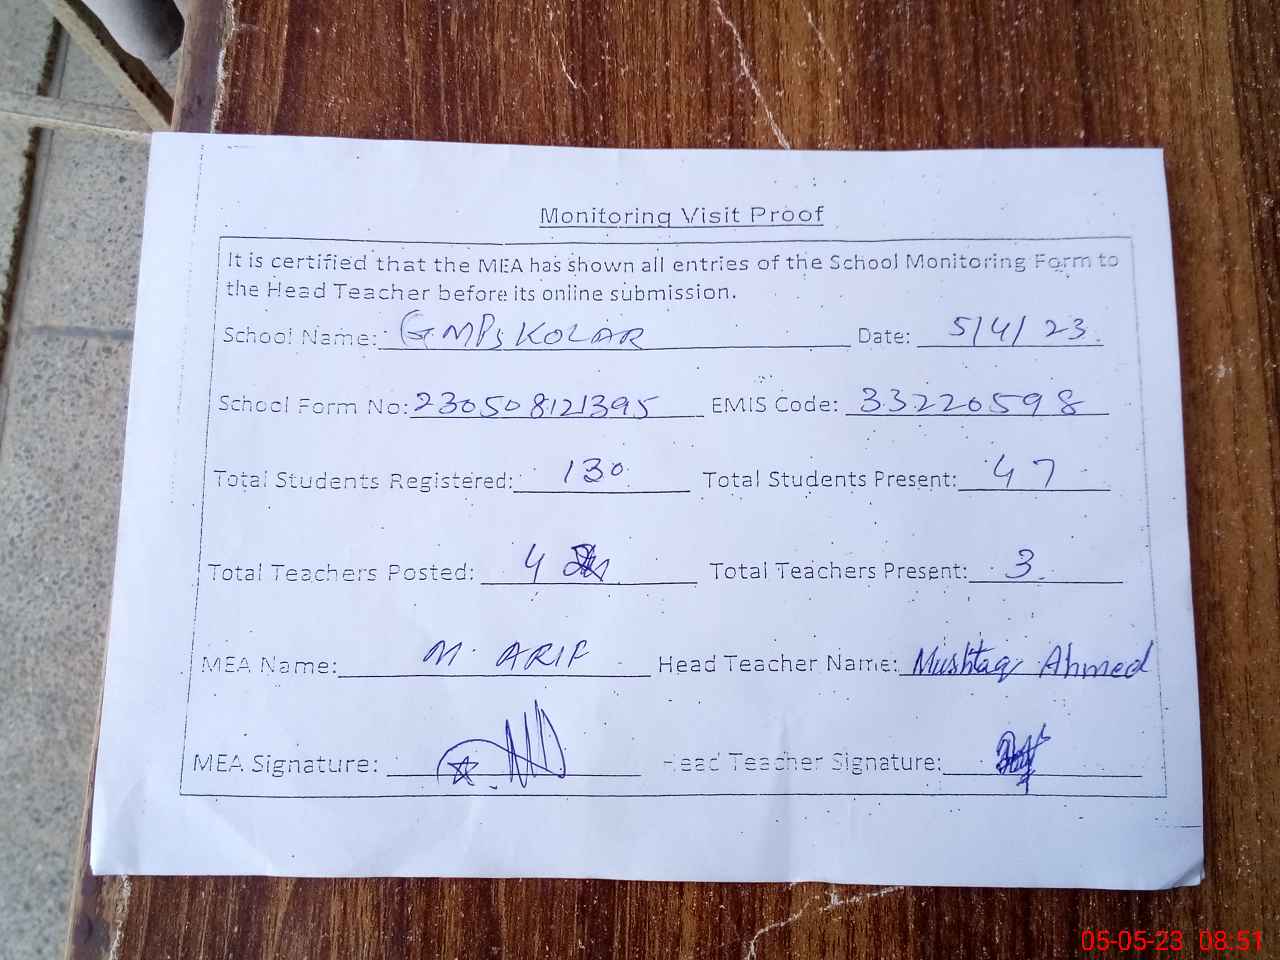 Monitoring Visit Proof
It is certified that the MEA has shown all entries of the School Monitoring Form to
the Head Teacher before its online submission.
School Name: GMPS KOLAR Date: 5/4/23
School Form No: 230508121395 EMIS Code: 33220598
Total Students Registered: 130 Total Students Present: 47
Total Teachers Posted: 4 Total Teachers Present: 3
MEA Name: M. ARIF Head Teacher Name: Mushtaq Ahmed
MEA Signature: Head Teacher Signature:
05-05-23 08:51